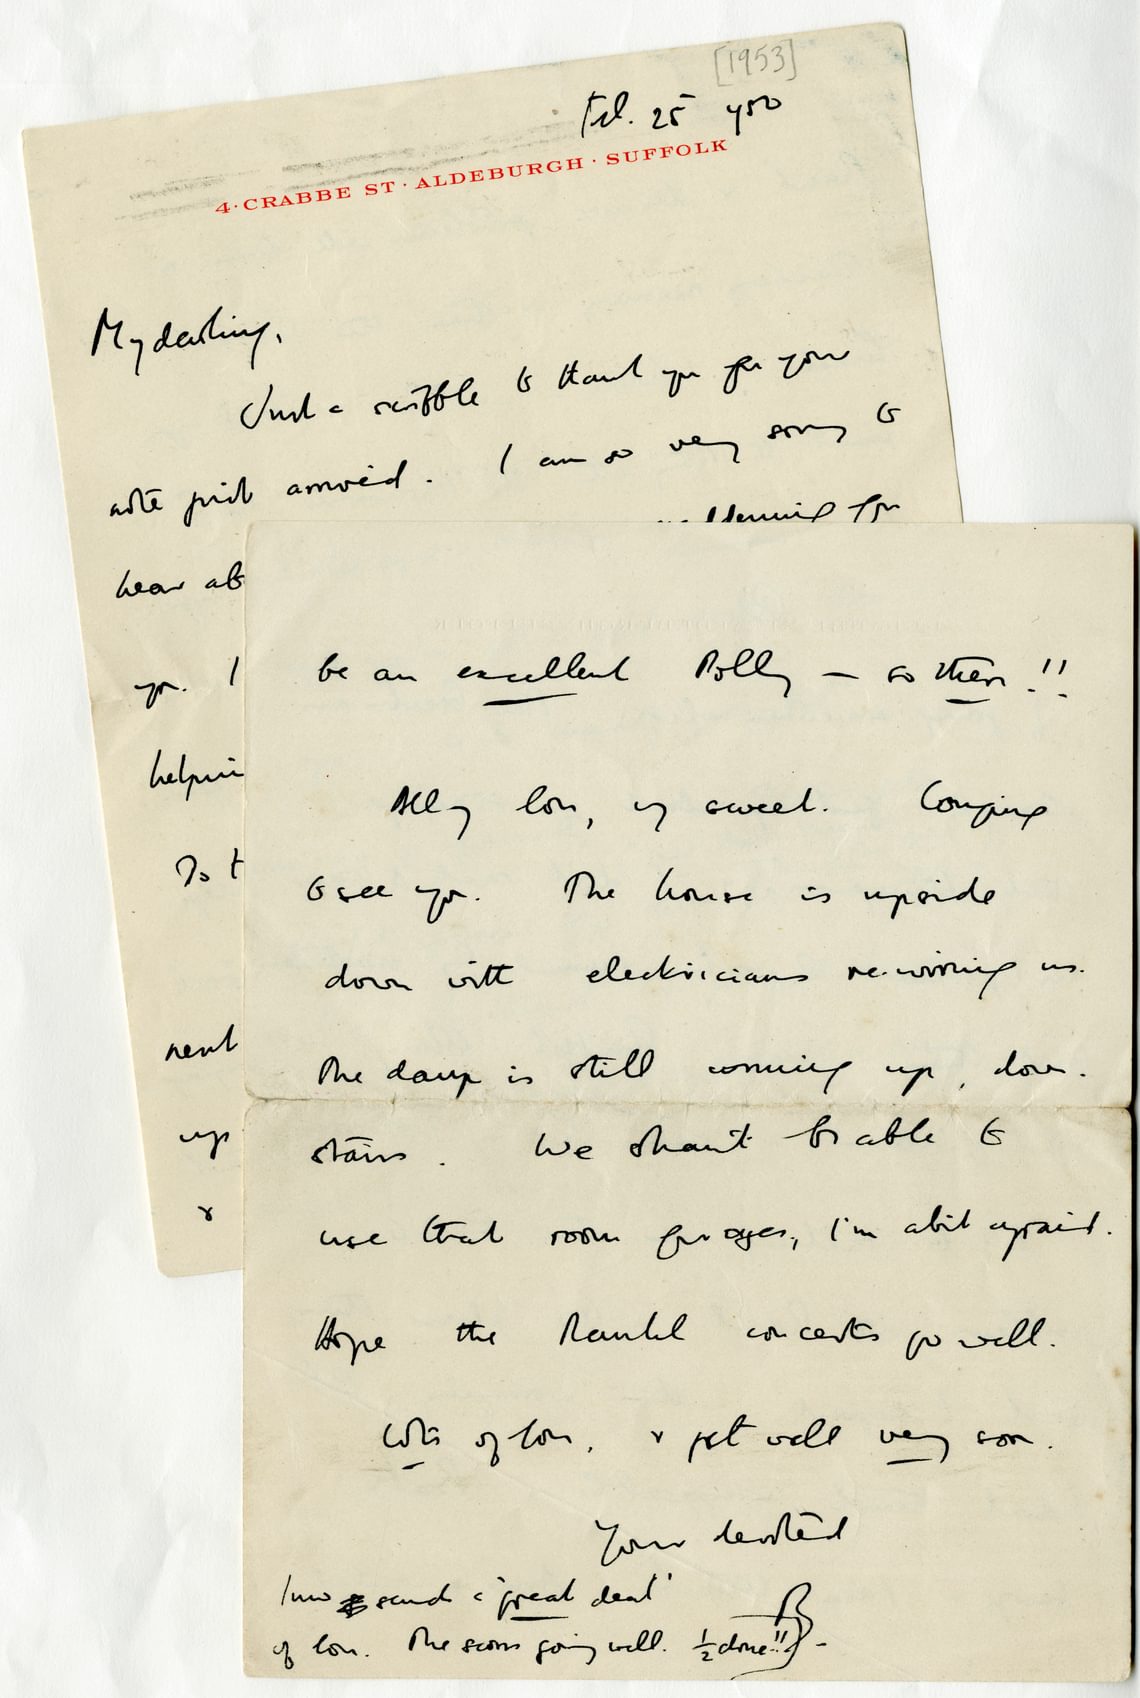 [1953]
Tel. 25 yso
4·CRABBE ST·ALDEBURGH·SUFFOLK
My darling,
Just a scribble to thank you for your
note just arrived. I am so very sorry to
maddening for
hear ab
you. I
helpin
To t
next
up
&
be an excellent Polly — so there!!
All my love, my sweet. Longing
to see you. The house is upside
down with electricians re-wiring us.
The damp is still coming up, down-
stairs. We shan't be able to
use that room for ages, I'm a bit afraid.
Hope the concerts go well.
Lots of love, & get well very soon.
Your devoted
B
Imo sends a 'great deal'
of love. The score going well. ½ done!!